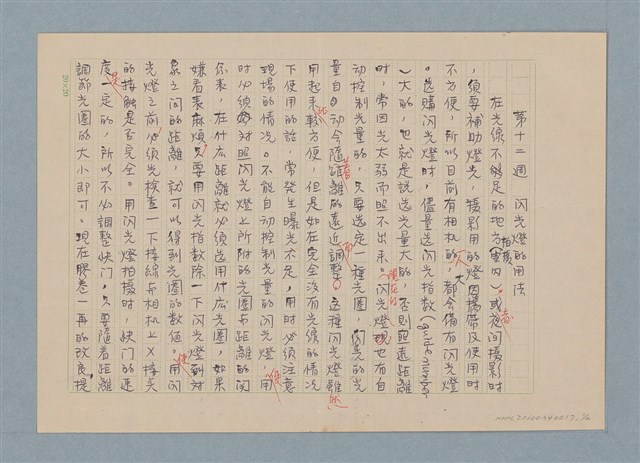 第十二週　閃光燈的用法
在光線不够足的地方拍攝(室內)。或夜间攝影時
，須要補助燈光，攝影用的燈因攜帶及使用時
不方便，所以目前有相机的人大都会備有閃光燈
。选購閃光燈時，儘量选閃光指数
大的，也就是說选光量大的，否則照遠距離
時，常因光太弱而照不出来。閃光燈現也有自
动控制光量的，只要选定一種光圈，閃光的光
量自动会随着距離的遠近而調整。这種閃光燈雖然
用起来較方便，但是如在完全没有光線的情况
下使用的話，常発生曝光不足，用時必須注意
現場的情况。不能自动控制光量的閃光燈，使用
時必須对照閃光燈上所附的光圈与距離的関
係表，在什広距離就必須选用什広光圈，如果
嫌看表麻煩，只要用閃光指数除一下閃光燈到对
象之间的距離，就可以得到光圈的数值。使用閃
光燈之前必須先檢查一下接線与相机上X接头
的接触是否完全。用閃光燈拍攝時，快門的速
度是一定的，所以不必調整快门，只要随着距離
調節光圈的大小即可。現在膠卷一再的改良，提
20×20